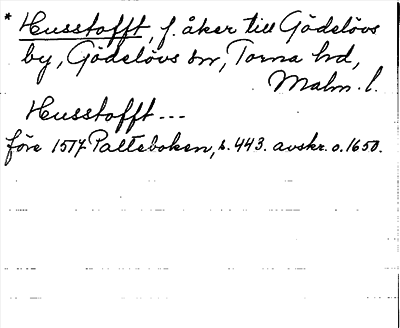 * Husstofft, f. åker till Gödelövs
by, Gödelövs sn, Torna hd,
Malm. l.
Husstofft ---
före 1517 Palteboken, s. 443. avskr. o. 1650.